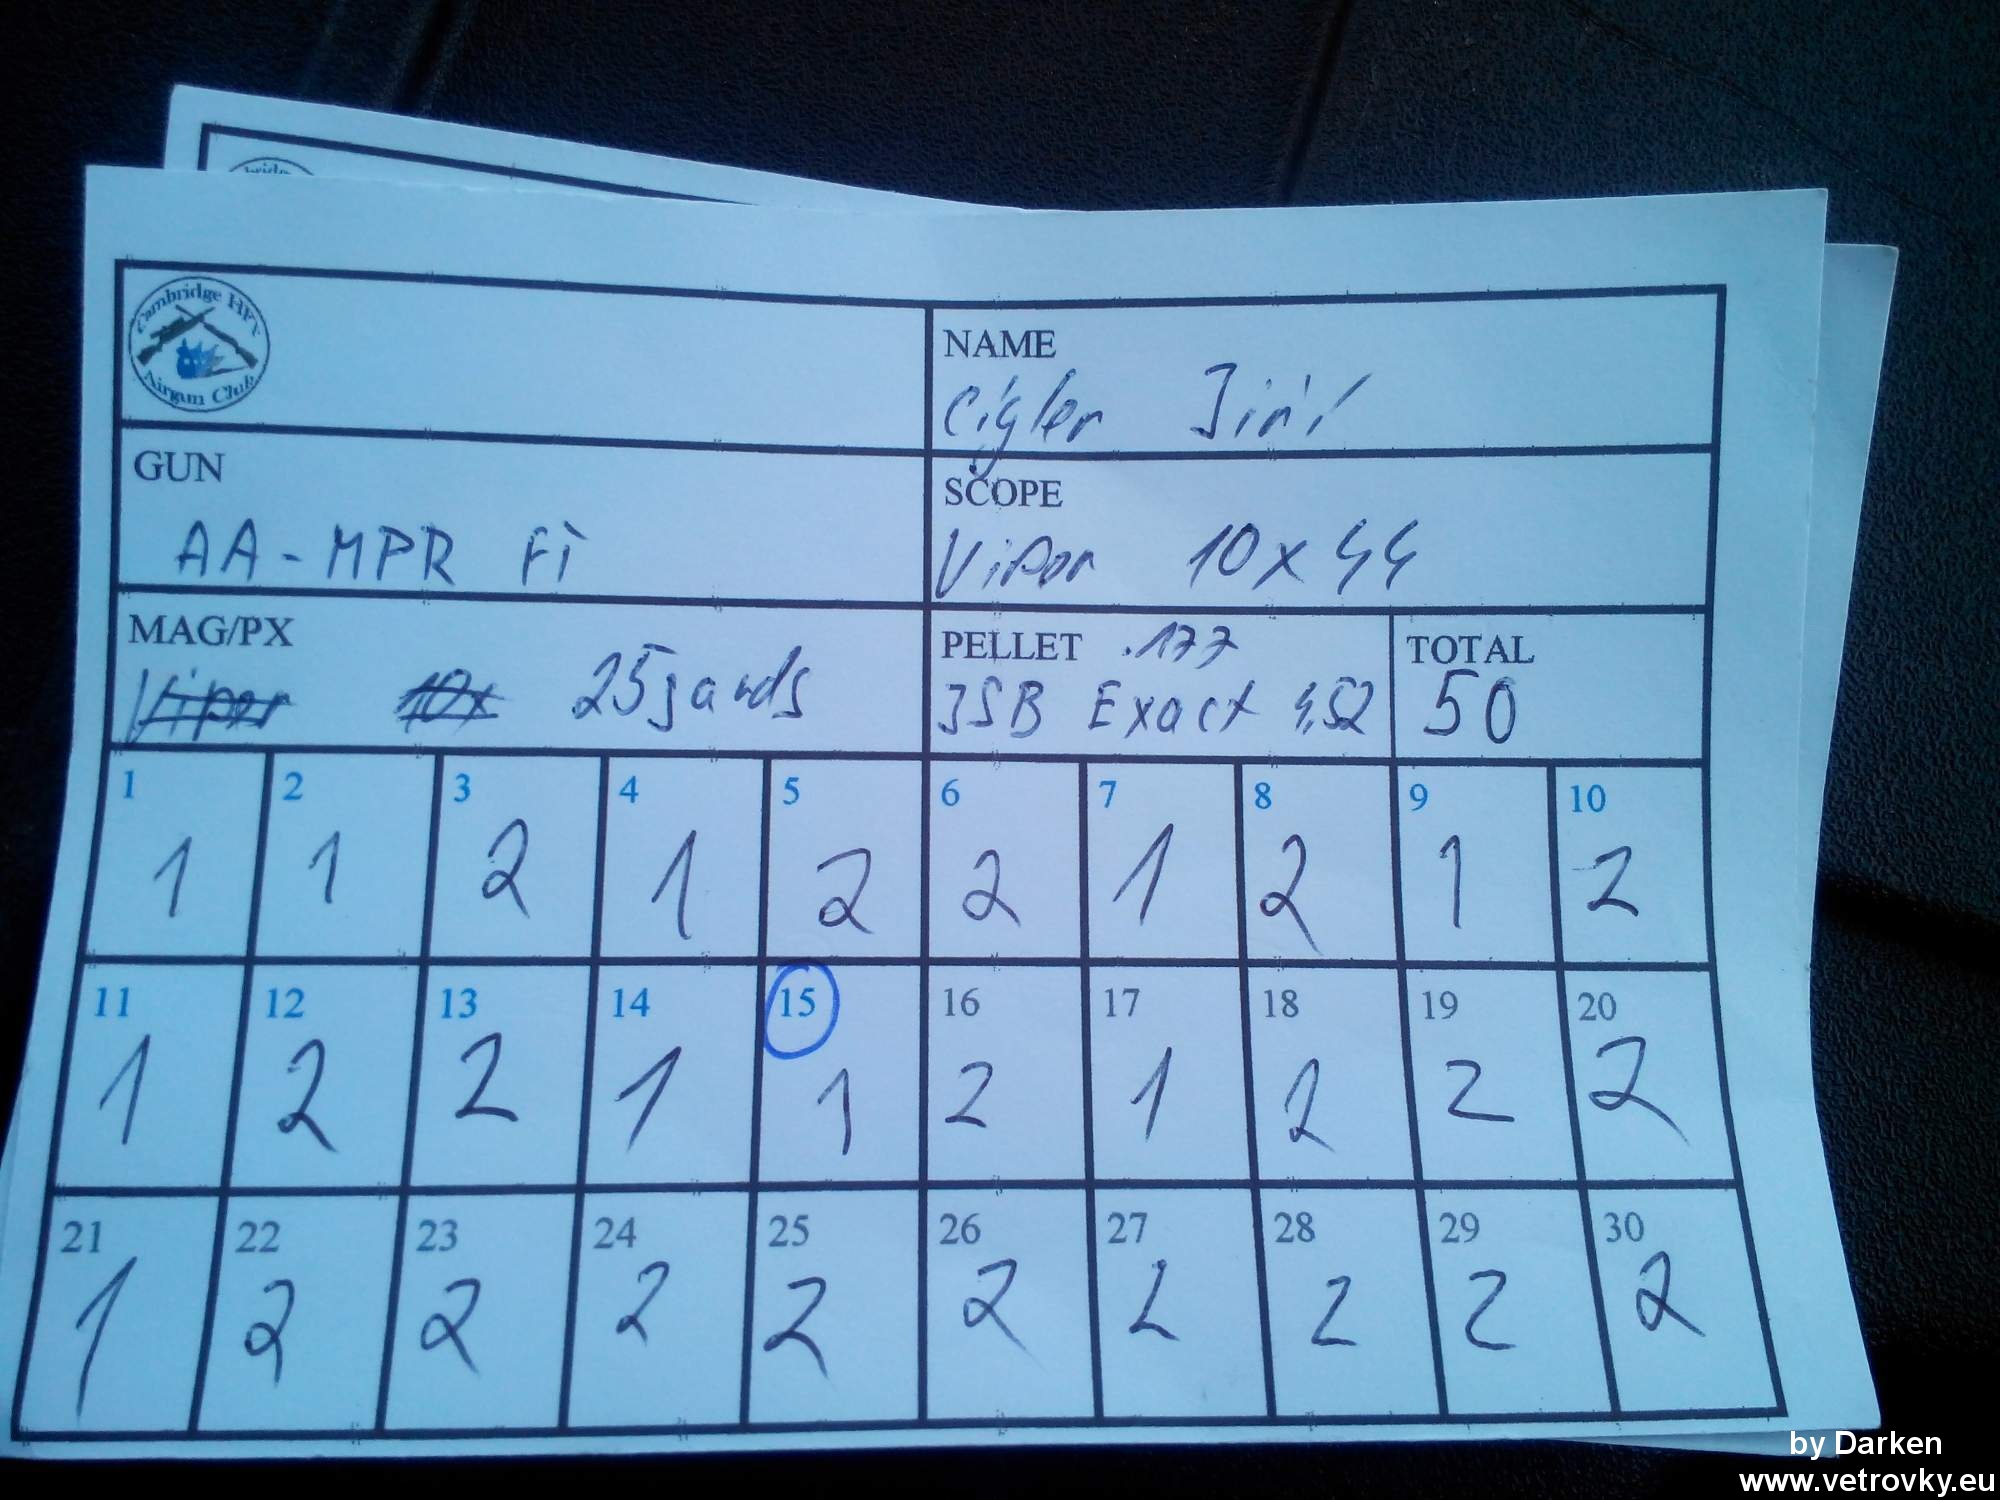 Cambridge HFT
Airgun Club
NAME
Cígler Jiří
GUN
AA-MPR FT
SCOPE
Viper 10x44
MAG/PX
Viper 10x 25yards
PELLET .177
JSB Exact 4,52
TOTAL
50
1 2 3 4 5 6 7 8 9 10
1 1 2 1 2 2 1 2 1 2
11 12 13 14 15 16 17 18 19 20
1 2 2 1 1 2 1 2 2 2
21 22 23 24 25 26 27 28 29 30
1 2 2 2 2 2 2 2 2 2
by Darken
www.vetrovky.eu